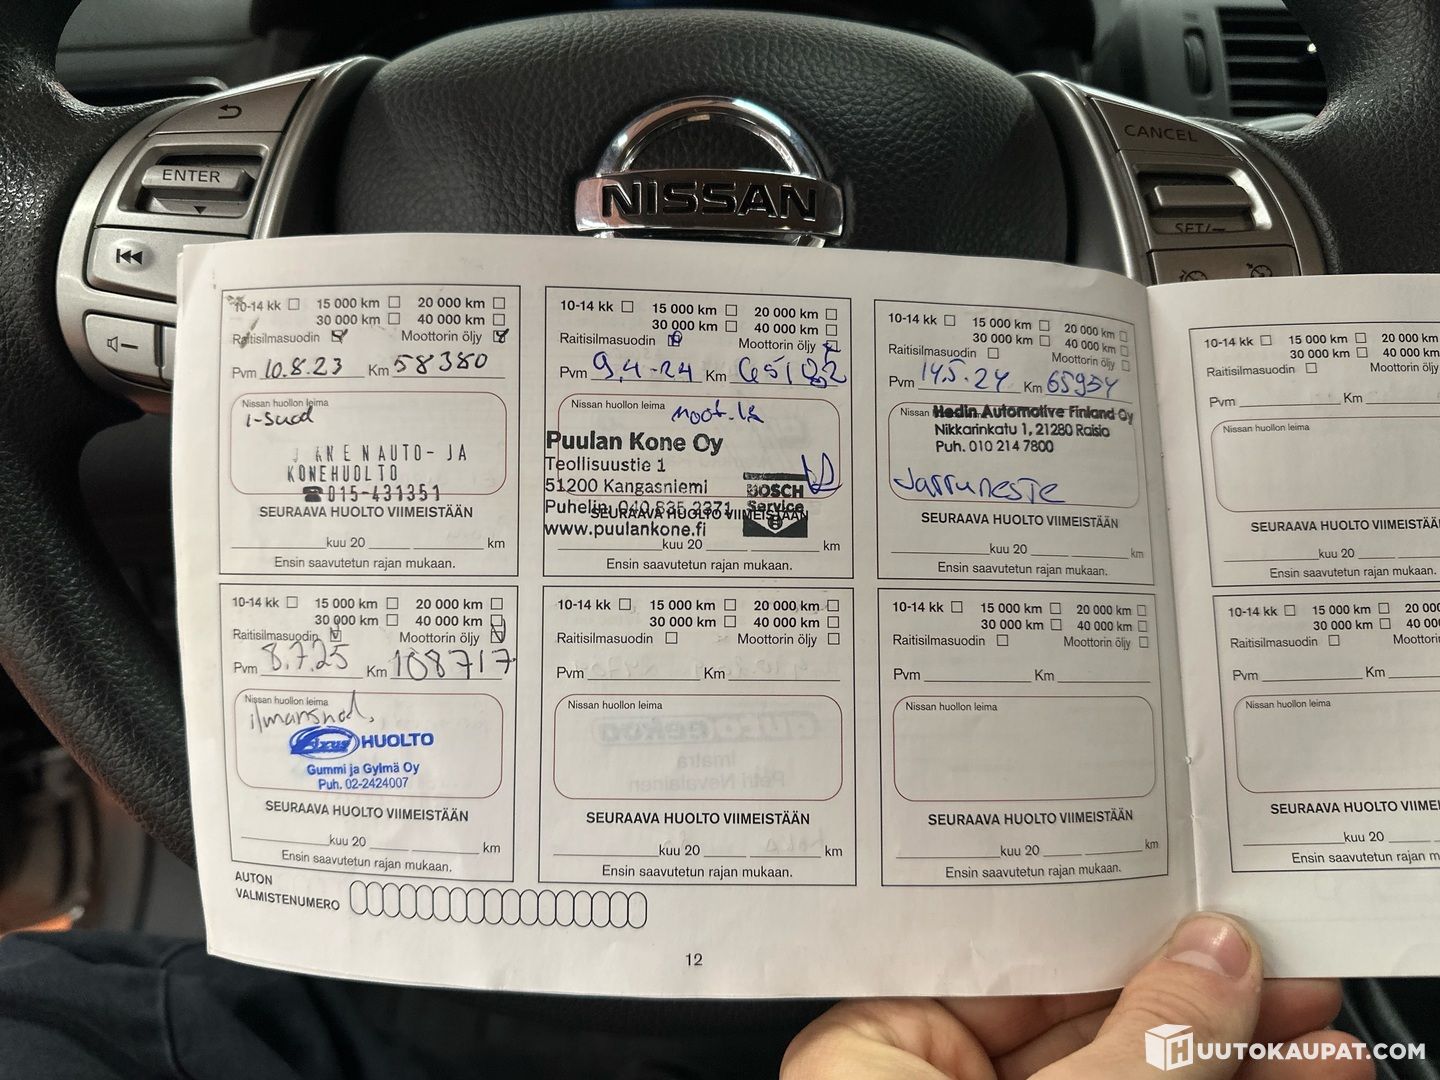 ENTER
NISSAN
CANCEL
SET/—
10-14 kk 15 000 km 20 000 km
30 000 km 40 000 km
Raitisilmasuodin Moottorin öljy
Pvm 10.8.23 Km 58380
Nissan huollon leima
i-Suod
NEN AUTO- JA
KONEHUOLTO
☎015-431351
SEURAAVA HUOLTO VIIMEISTÄÄN
kuu 20 km
Ensin saavutetun rajan mukaan.
10-14 kk 15 000 km 20 000 km
30 000 km 40 000 km
Raitisilmasuodin Moottorin öljy
Pvm 9.4-24 Km
Nissan huollon leima
Puulan Kone Oy
Teollisuustie 1
51200 Kangasniemi
Puhelin: 040 835 2371
www.puulankone.fi
BOSCH
Service
SEURAAVA HUOLTO VIIMEISTÄÄN
kuu 20 km
Ensin saavutetun rajan mukaan.
10-14 kk 15 000 km 20 000 km
30 000 km 40 000 km
Raitisilmasuodin Moottorin öljy
Pvm 14.5.24 Km 65934
Nissan
Hedin Automotive Finland Oy
Nikkarinkatu 1, 21280 Raisio
Puh. 010 214 7800
Jarruneste
SEURAAVA HUOLTO VIIMEISTÄÄN
kuu 20 km
Ensin saavutetun rajan mukaan.
10-14 kk 15 000 km 20 000
30 000 km 40 000 km
Raitisilmasuodin Moottorin öljy
Pvm Km
Nissan huollon leima
SEURAAVA HUOLTO VIIMEISTÄÄN
kuu 20
Ensin saavutetun rajan mukaan.
10-14 kk 15 000 km 20 000 km
30 000 km 40 000 km
Raitisilmasuodin Moottorin öljy
Pvm 8.7.25 Km 108717
Nissan huollon leima
ilmansuod.
Fixus HUOLTO
Gummi ja Gylmä Oy
Puh. 02-2424007
SEURAAVA HUOLTO VIIMEISTÄÄN
kuu 20 km
Ensin saavutetun rajan mukaan.
10-14 kk 15 000 km 20 000 km
30 000 km 40 000 km
Raitisilmasuodin Moottorin öljy
Pvm Km
Nissan huollon leima
SEURAAVA HUOLTO VIIMEISTÄÄN
kuu 20 km
Ensin saavutetun rajan mukaan.
10-14 kk 15 000 km 20 000 km
30 000 km 40 000 km
Raitisilmasuodin Moottorin öljy
Pvm Km
Nissan huollon leima
SEURAAVA HUOLTO VIIMEISTÄÄN
kuu 20 km
Ensin saavutetun rajan mukaan.
10-14 kk 15 000 km 20 00
30 000 km 40 00
Raitisilmasuodin Moottori
Pvm Km
Nissan huollon leima
SEURAAVA HUOLTO VIIME
kuu 20
Ensin saavutetun rajan m
AUTON
VALMISTENUMERO
12
HUUTOKAUPAT.COM